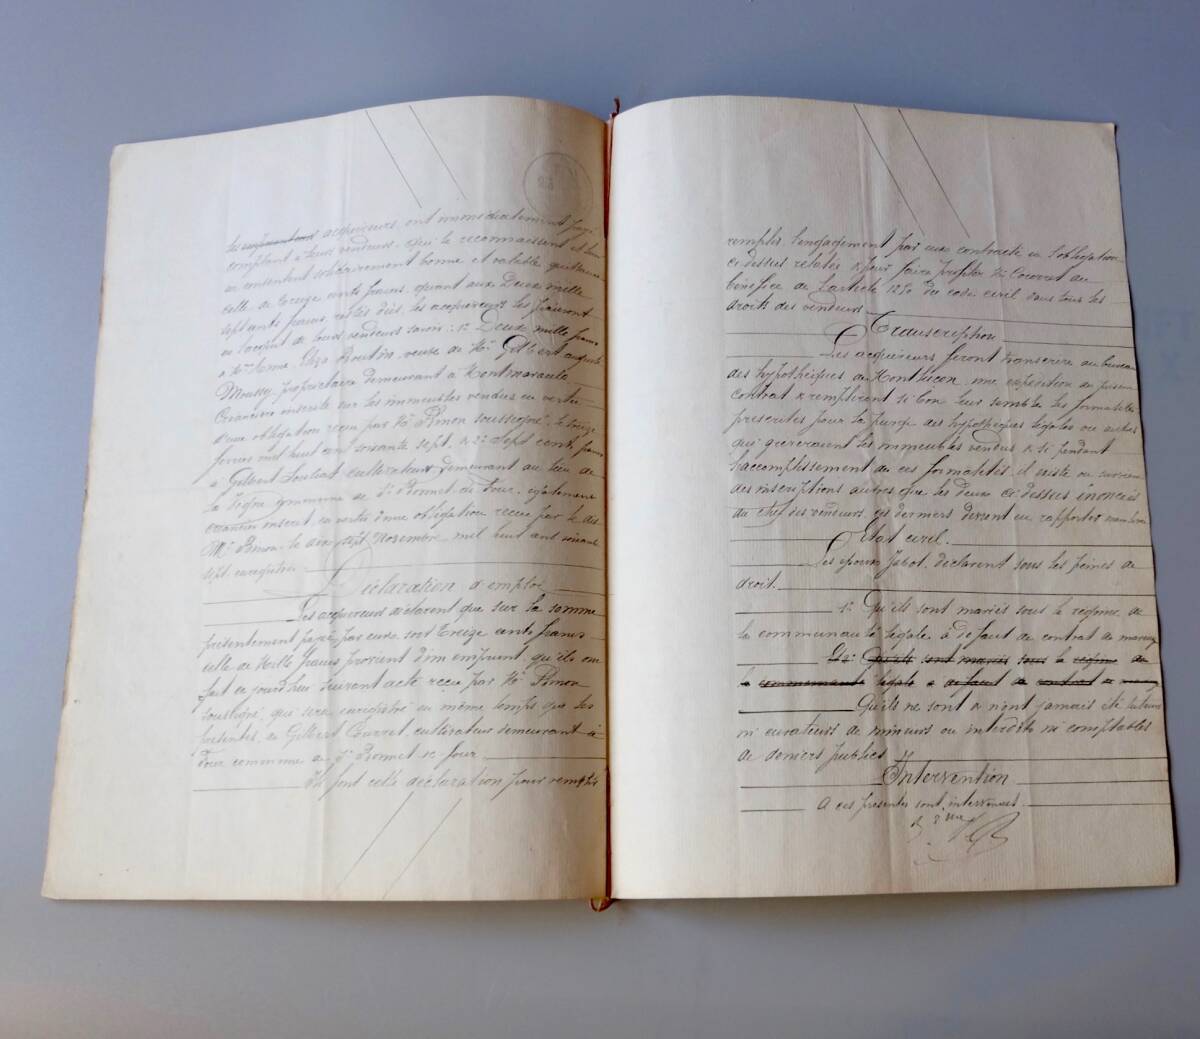 les acquéreurs, ont immédiatement payé
comptant à leurs vendeurs, qui le reconnaissent et leur
en consentent solidairement bonne et valable quittance
celle de treize cents francs, quant aux deux mille
sept cents francs, restés dûs, les acquéreurs les paieront
en l'acquit de leurs vendeurs savoir: 1° Deux mille francs
à Mme Anne Eliza Boutin, veuve de Mr Gilbert auguste
Moussy, propriétaire demeurant à Montmarault
Créancière inscrite sur les immeubles vendus en vertu
d'une obligation reçue par Me Pinon soussigné, le treize
février mil huit cent soixante sept & 2° Sept cents francs
à Gilbert cultivateur demeurant au lieu de
la commune de St Bonnet de four, également
créancier inscrit, en vertu d'une obligation reçue par le dit
Me Pinon le dix sept Novembre mil huit cent soixante
sept, enregistrée.
Déclaration d'emploi
Les acquéreurs déclarent que sur la somme
présentement payée par eux, soit treize cents francs
celle de Mille francs provient d'un emprunt qu'ils ont
fait ce jourd'hui suivant acte reçu par Me Pinon
soussigné, qui sera enregistré en même temps que les
présentes, de Gilbert cultivateur demeurant à
commune de St Bonnet de four
Ils font cette déclaration pour remplir
remplir l'engagement par eux contracté en l'obligation
ci dessus relatée & pour faire profiter
bénéfice de l'article 1250 du code civil dans tous les
droits des vendeurs
Transcription
Les acquéreurs feront transcrire au bureau
des hypothèques de Montluçon, une expédition du présent
contrat & rempliront si bon leur semble les formalités
prescrites pour la purge des hypothèques légales ou autres
qui grèveraient les immeubles vendus & si pendant
l'accomplissement de ces formalités, il existe ou survient
des inscriptions autres que les deux ci-dessus énoncées
du chef des vendeurs, ces derniers devront en rapporter mainlevée
Etat civil.
Les époux Jabot, déclarent sous les peines de
droit.
1° Qu'ils sont mariés sous le régime de
la communauté légale à défaut de contrat de mariage
Et 2° Qu'ils sont mariés sous le régime de
la communauté légale à défaut de contrat de mariage
Qu'ils ne sont & n'ont jamais été tuteurs
ni curateurs de mineurs ou interdits ni comptables
de deniers publics
Intervention
A ces présentes sont intervenus.